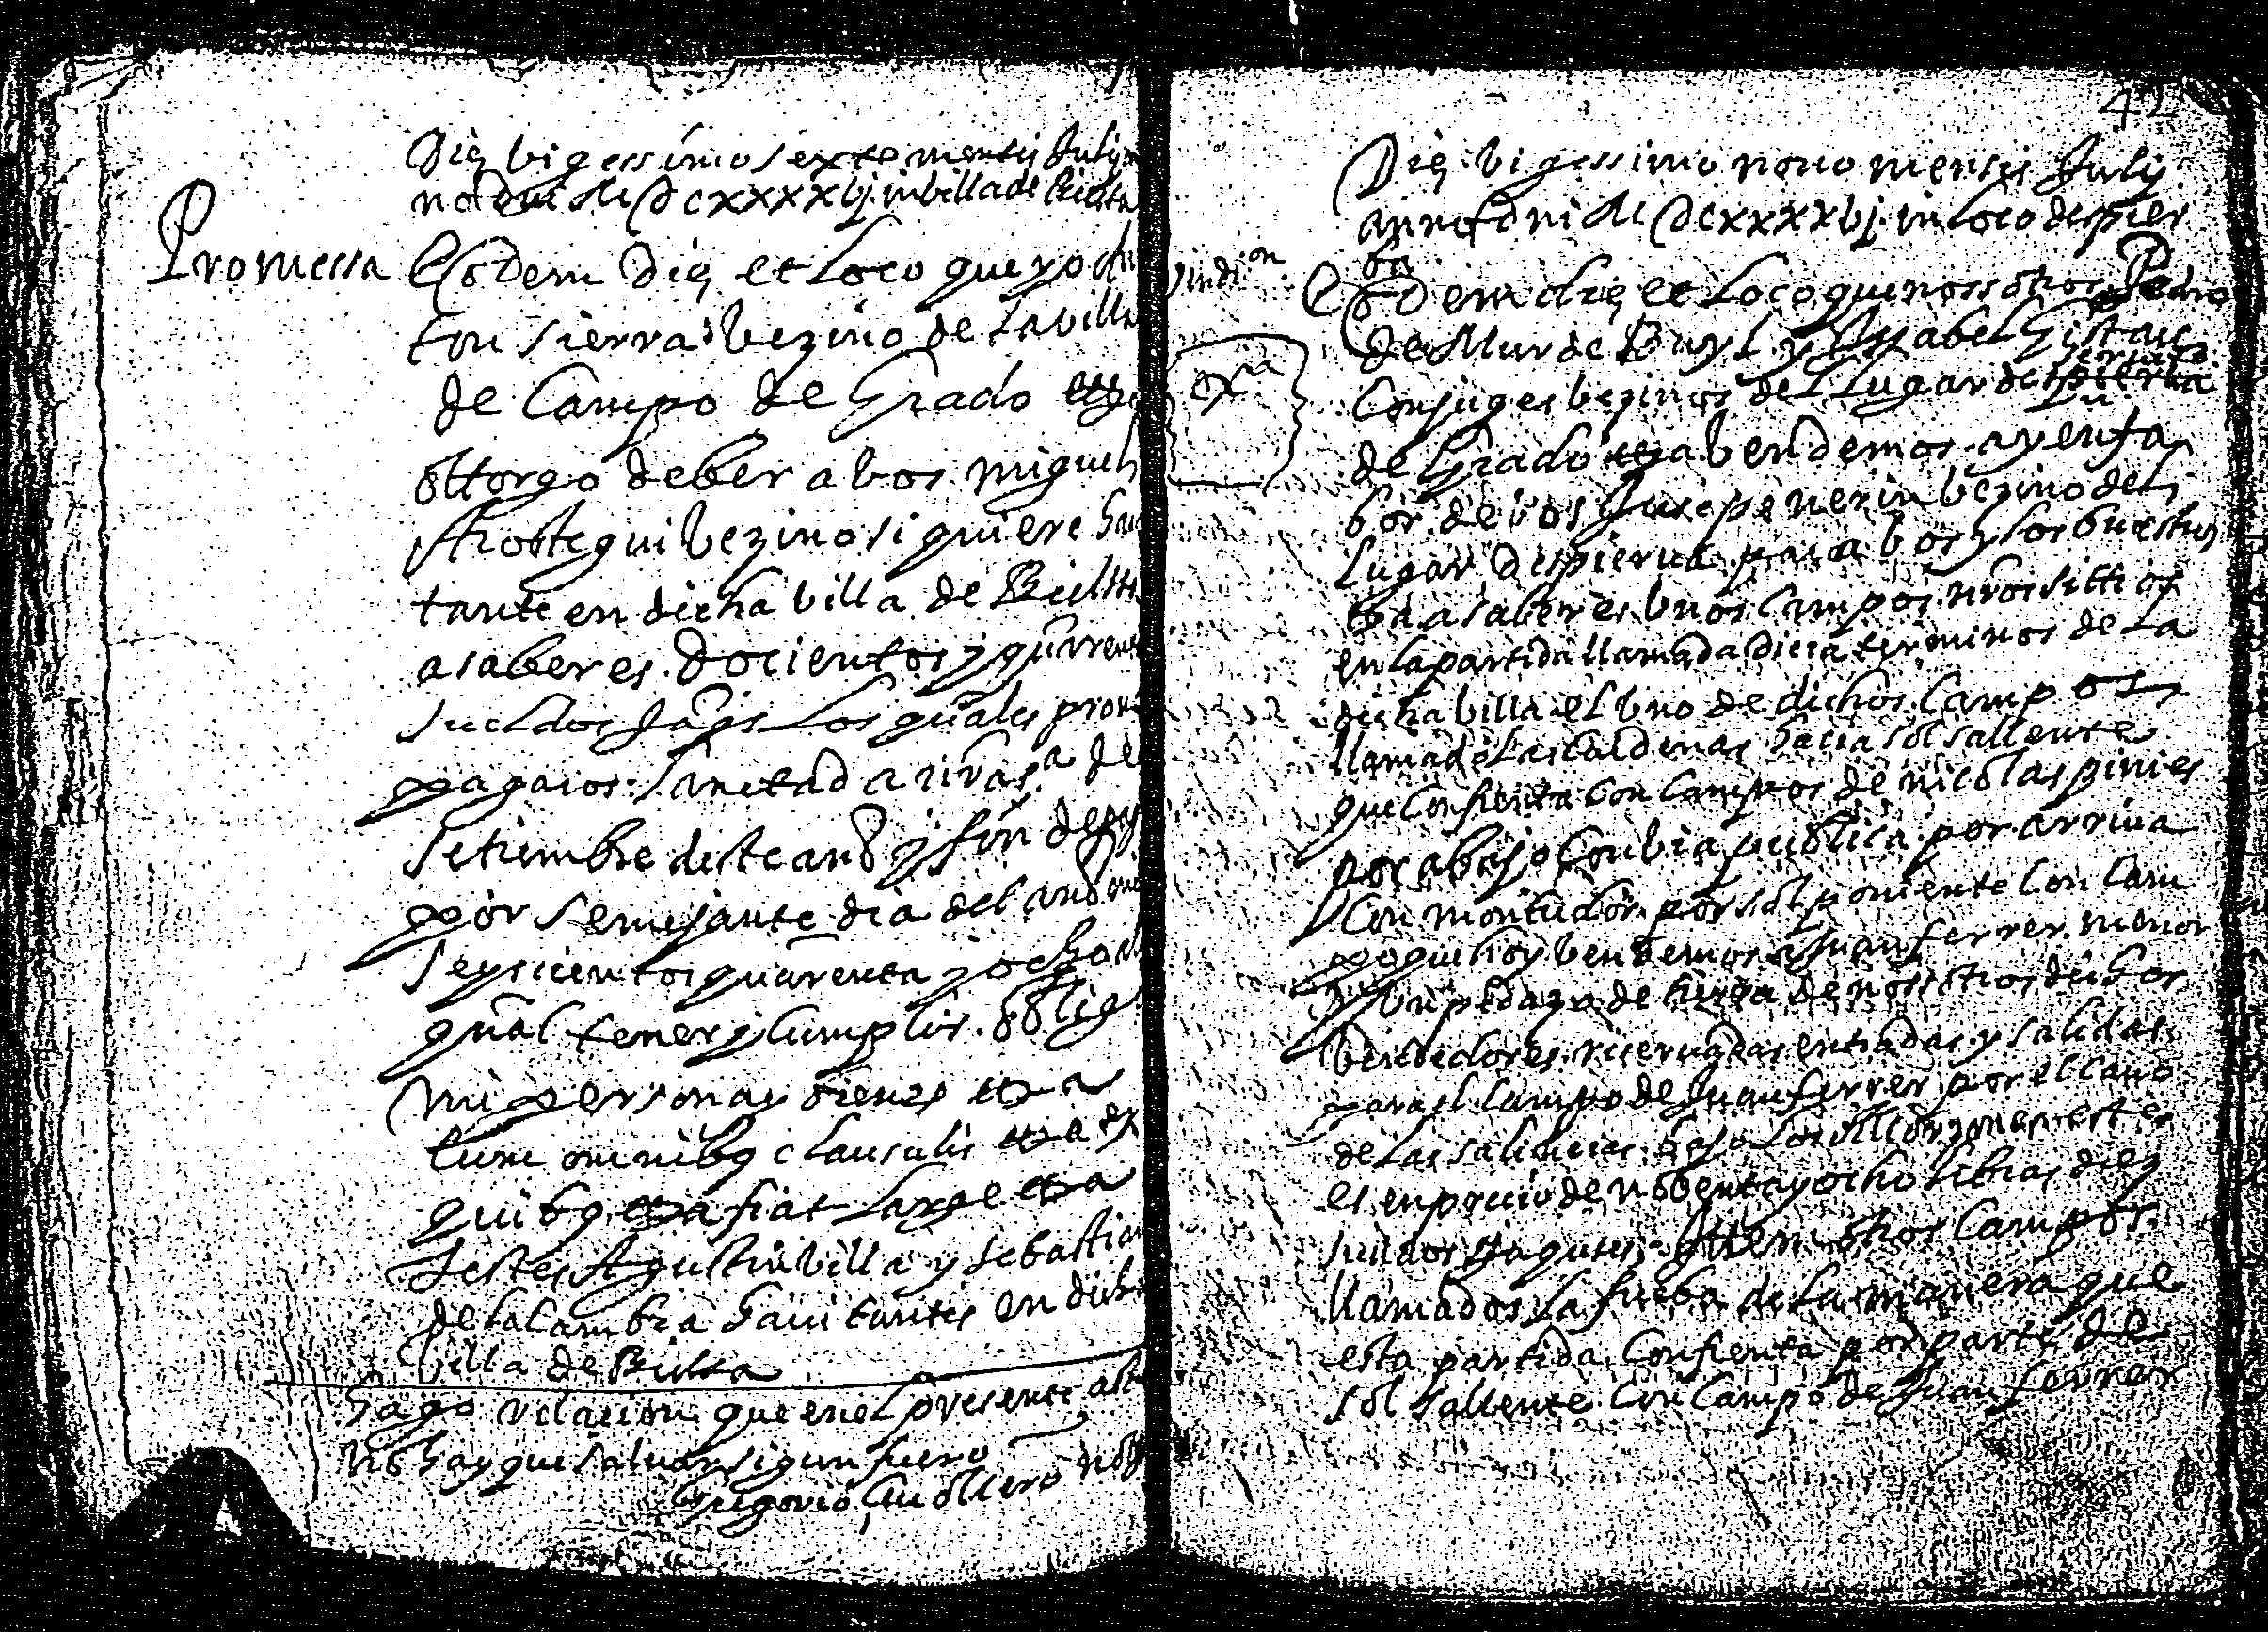 Die vigessimo sexto mensis Julij
no dni M DCxxxxvj. in villa de Bielsa
Promessa
Eodem die et Loco que yo An
ton Sierra vezino de La villa
de Campo de Grado etta
ottorgo deber a bos miguel
Arostegui vezino siquiere hau
tante en dicha villa de Bielssa
a saber es. docientos y quarenta
sueldos Jaqs Los quales prom
pagaros. La metad a nra s.a de
setiembre deste año y fin de pag
por semejante dia del año mil
seyscientos quarenta y ocho al
qual tener y cumplir. oblig
mi persona y bienes etta
cum omnibus clausulis etta ex
quibus etta fiat Large etta
Testes Agustin villa y sebastian
de La Cambra hauitantes en dicha
villa de Bielsa
hago relacion que en el presente acto
no hay que saluar sigun fuero
Gregorio not
42
Die vigessimo nono mensis Julij
anno dni M DCxxxxvj. in Loco despier
ba
Vindi.on
Eodem die et Loco que nossotros Pedro
ex.a
de Mur de Buyl y Ysabel Gistau
Conjuges vezinos del Lugar de
de Grado etta bendemos
por de vos Jusepe nerin vezino del
Lugar despierua para bos y los buestros
a saber es. unos Campos nros sittios
en la partida llamada terminos de La
dicha villa el uno de dichos Campos
llamado Las Caldenas hacia sol sallente
que Confrenta con Campos de nicolas pinies
por abajo Con via publica por arriua
Con por sol poniente Con Cam
po que hoy bendemos a Juan ferrer menor
y un pedazo de de nossotros dichos
bendedores. entradas y salidas
para el Campo de Juan ferrer por el
de Las
es en precio de nobenta y ocho Libras diez
sueldos Jaqueses. Ittem otros Campos.
llamados La fueba de La manera que
esta partida. Confrenta por parte de
sol sallente Con Campo de Juan ferrer